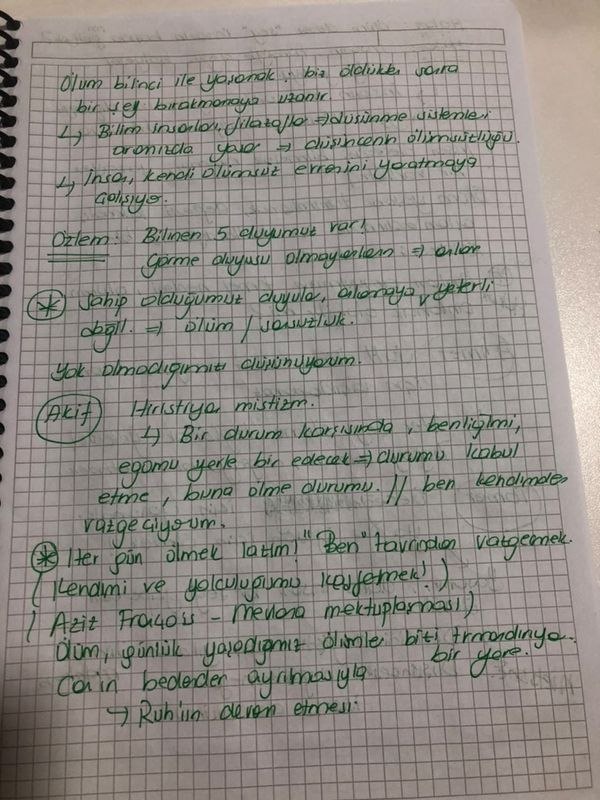 Ölüm bilinci ile yaşamak; biz öldükten sonra
bir şey bırakmamaya uzanır.
↳ Bilim insanları, filozoflar ⇒ düşünme sistemleri
aramızda yaşar ⇒ düşüncenin ölümsüzlüğü.
↳ İnsan, kendi ölümsüz evrenini yaratmaya
çalışıyor.
Özlem: Bilinen 5 duyumuz var!
Görme duyusu olmayanların ⇒ onlar
* Sahip olduğumuz duyular, anlamaya yeterli
değil. ⇒ ölüm / sonsuzluk.
Yok olmadığımızı düşünüyorum.
Akif Hıristiyan mistizm.
↳ Bir durum karşısında, benliğimi,
egomu yerle bir edecek ⇒ durumu kabul
etme, buna ölme durumu. // ben kendimden
vazgeçiyorum.
* Her gün ölmek lazım! "Ben" tavrından vazgeçmek.
(Kendimi ve yolculuğumu keşfetmek!)
(Aziz François - Mevlana mektuplaşması)
Ölüm, günlük yaşadığımız ölümler bizi
bir yere.
Can'ın bedenden ayrılmasıyla
→ Ruh'un devam etmesi.